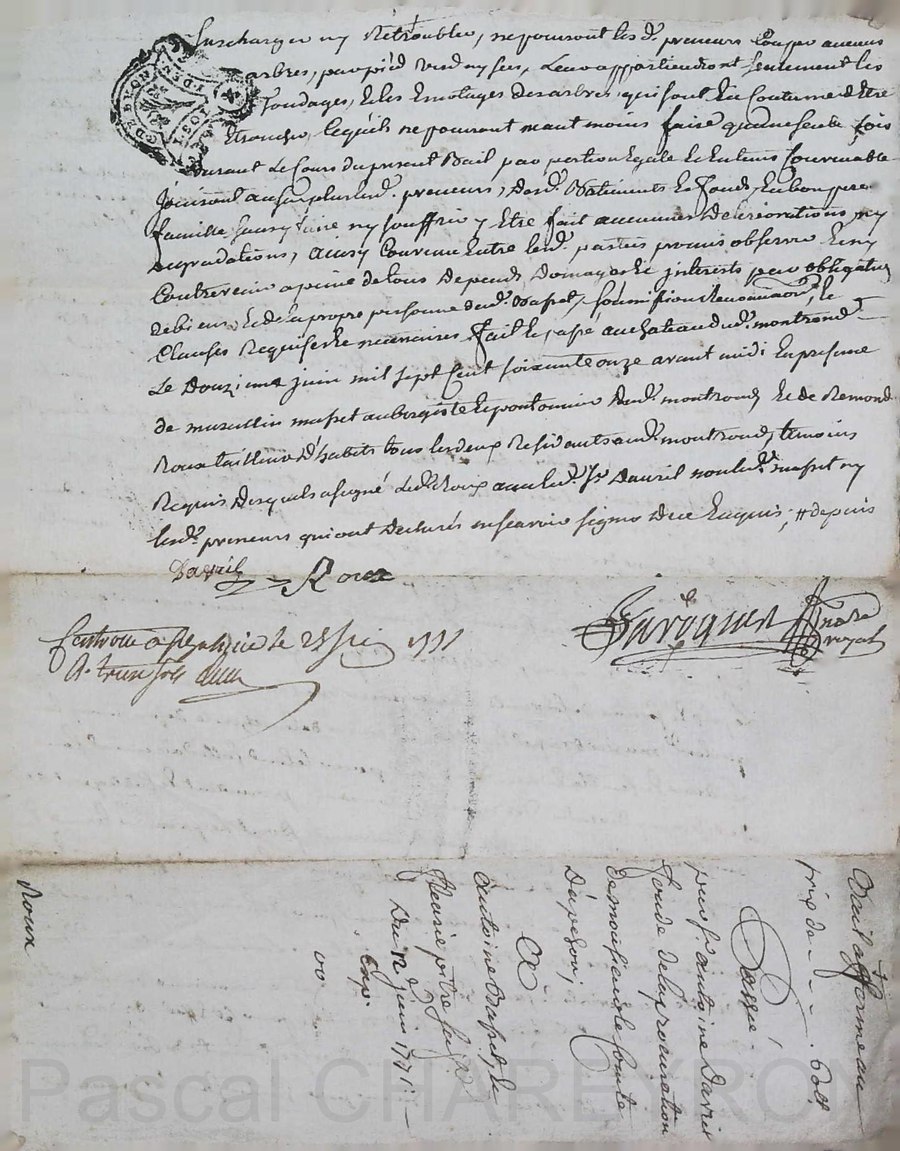 Surcharger ny Retroubler, ne pouront les d. preneurs Couper aucuns
arbres, par pied verd ny sec, Leur appartiendront seulement les
fondages, et les Emotages des arbres, qui sont En Coutume d'Etre
lequels ne pouront neantmoins faire qu'une seule fois
durant Le Cours du present Bail par portion Egale Et En tems Convenable
Jouiront au surplus les d. preneurs, des d. Batiments Et fonds, En bon pere
famille sans y faire ny souffrir y Etre fait aucunes deteriorations, ny
degradations, ainsy Convenu Entre les d. parties promis observer Et ny
Contrevenir a peine de tous depends Domages Et interests par obligation
de biens, Et de la propre personne du d. soumissions Renonciations, Et
Clauses Requises Et necessaires fait Et passé, au chateau du d. montrond
Le Douzieme juin mil sept Cent soixante onze avant midi En presence
de marcellin maset aubergiste Et pontonnier du d. montrond, Et de Remond
Roux tailleur d'habits tous les deux Residants au d. montrond, temoins
Requis Desquels a signé Le d. Roux avec le d. Sr Davril non le d. maset ny
les d. preneurs qui ont Declarés ne scavoir signer De ce Enquis; # depuis
Davril Roux
le 25 juin 1771
Roux
Bail a fferme au
prix de - - - 60ll
Passé
par Sr antoine Davril
fondé de la procuration
de monsieur le Comte
Dapchon;
A
antoine Et
Du 12e juin 1771
Exp.
Pascal CHAREYRON